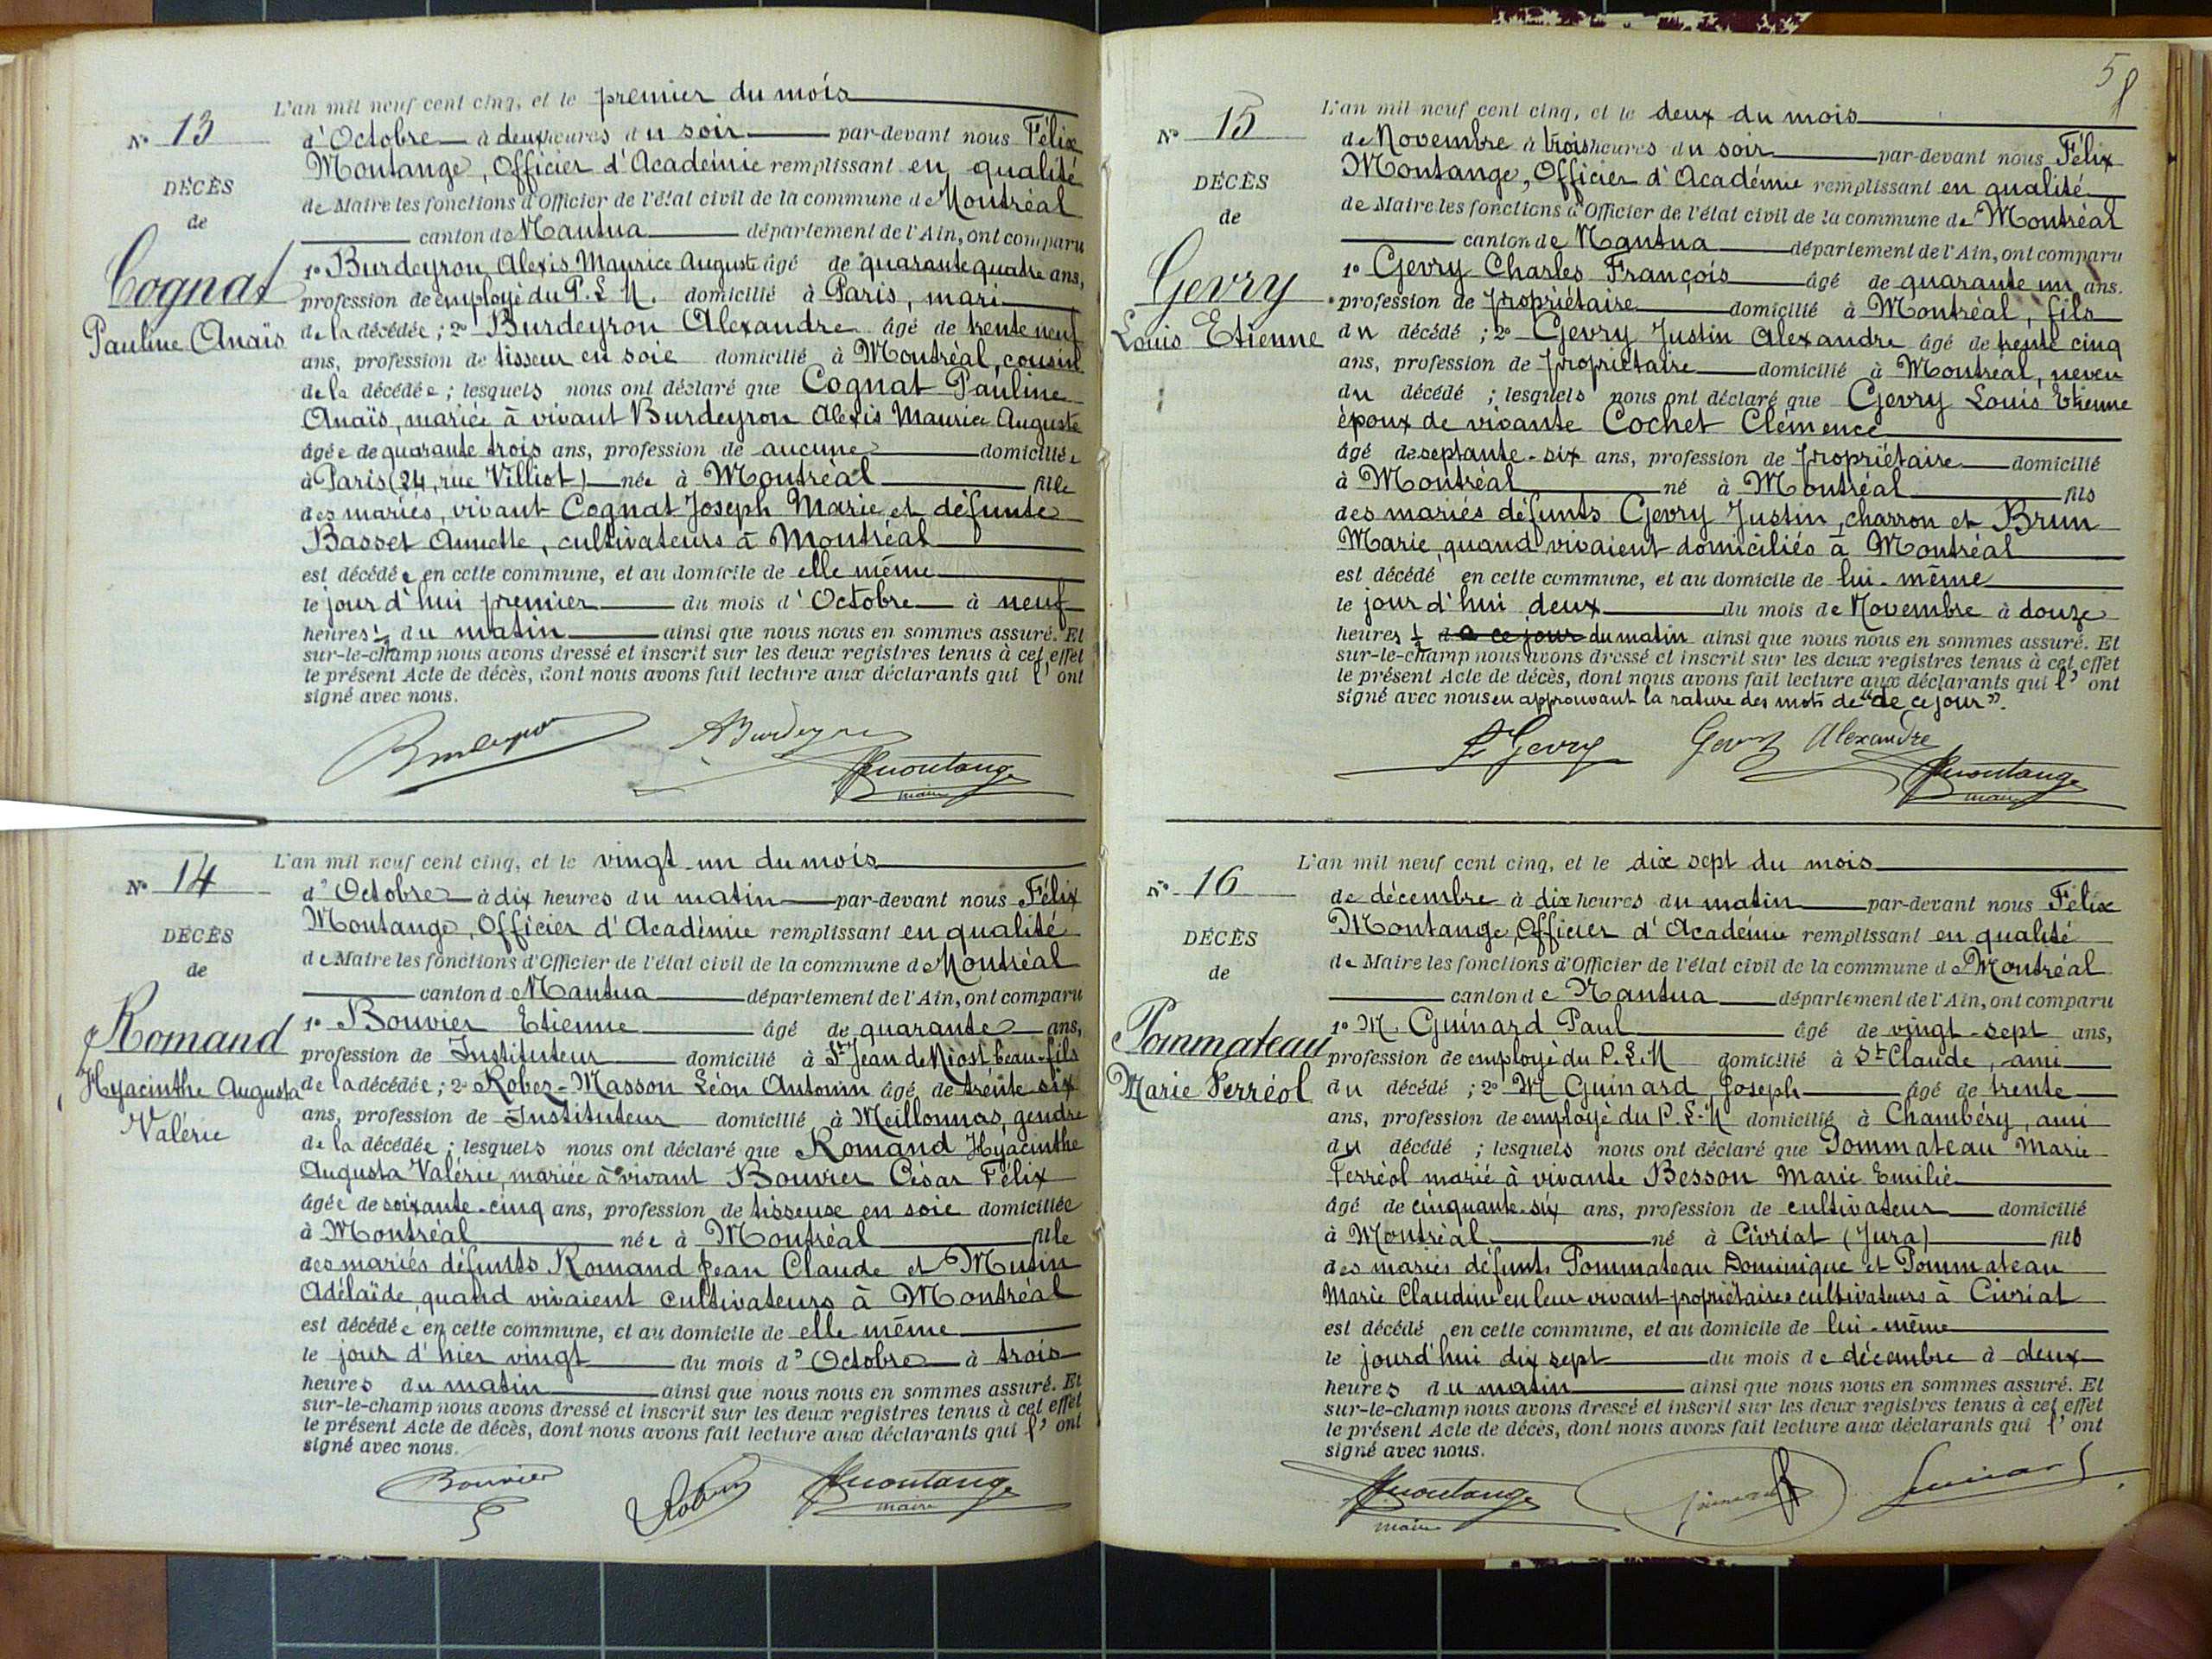 L'an mil neuf cent cinq, et le premier du mois
N° 13
d'Octobre à deux heures du soir par-devant nous Félix
Montange, Officier d'Académie remplissant en qualité
DÉCÈS
de Maire les fonctions d'Officier de l'état civil de la commune de Montréal
de
canton de Nantua département de l'Ain, ont comparu
Cognat
1° Burdeyron Alexis Maurice Auguste âgé de quarante quatre ans,
profession de employé du P. L. M. domicilié à Paris, mari
Pauline Anaïs
de la décédée ; 2° Burdeyron Alexandre âgé de trente neuf
ans, profession de tisseur en soie domicilié à Montréal, cousin
de la décédée ; lesquels nous ont déclaré que Cognat Pauline
Anaïs, mariée à vivant Burdeyron Alexis Maurice Auguste
âgée de quarante trois ans, profession de aucune domiciliée
à Paris (24, rue Villiot) née à Montréal fille
des mariés, vivant Cognat Joseph Marie et défunte
Basset Annette, cultivateurs à Montréal
est décédée en cette commune, et au domicile de elle même
le jour d'hui premier du mois d'Octobre à neuf
heures ½ du matin ainsi que nous nous en sommes assuré. Et
sur-le-champ nous avons dressé et inscrit sur les deux registres tenus à cet effet
le présent Acte de décès, dont nous avons fait lecture aux déclarants qui l'ont
signé avec nous.
ABurdeyron
FMontange
maire
L'an mil neuf cent cinq, et le vingt-un du mois
N° 14
d'Octobre à dix heures du matin par-devant nous Félix
Montange, Officier d'Académie remplissant en qualité
DÉCÈS
de Maire les fonctions d'Officier de l'état civil de la commune de Montréal
de
canton de Nantua département de l'Ain, ont comparu
Romand
1° Bouvier Etienne âgé de quarante ans,
profession de Instituteur domicilié à St Jean de Niost beau-fils
Hyacinthe Augusta
de la décédée ; 2° Robez-Masson Léon Antonin âgé de trente-six
Valérie
ans, profession de Instituteur domicilié à Meillonnas, gendre
de la décédée ; lesquels nous ont déclaré que Romand Hyacinthe
Augusta Valérie, mariée à vivant Bouvier César Félix
âgée de soixante-cinq ans, profession de tisseuse en soie domiciliée
à Montréal née à Montréal fille
des mariés défunts Romand Jean Claude et Mutin
Adélaïde, quand vivaient cultivateurs à Montréal
est décédée en cette commune, et au domicile de elle même
le jour d'hier vingt du mois d'Octobre à trois
heures du matin ainsi que nous nous en sommes assuré. Et
sur-le-champ nous avons dressé et inscrit sur les deux registres tenus à cet effet
le présent Acte de décès, dont nous avons fait lecture aux déclarants qui l'ont
signé avec nous.
Bouvier
FMontange
maire
58
L'an mil neuf cent cinq, et le deux du mois
N° 15
de Novembre à trois heures du soir par-devant nous Félix
Montange, Officier d'Académie remplissant en qualité
DÉCÈS
de Maire les fonctions d'Officier de l'état civil de la commune de Montréal
de
canton de Nantua département de l'Ain, ont comparu
Gevry
1° Gevry Charles François âgé de quarante un ans.
profession de propriétaire domicilié à Montréal, fils
Louis Etienne
du décédé ; 2° Gevry Justin Alexandre âgé de trente cinq
ans, profession de propriétaire domicilié à Montréal, neveu
du décédé ; lesquels nous ont déclaré que Gevry Louis Etienne
époux de vivante Cochet Clémence
âgé de septante-six ans, profession de propriétaire domicilié
à Montréal né à Montréal fils
des mariés défunts Gevry Justin, charron et Brun
Marie, quand vivaient domiciliés à Montréal
est décédé en cette commune, et au domicile de lui-même
le jour d'hui deux du mois de Novembre à douze
heures ½ de ce jour du matin ainsi que nous nous en sommes assuré. Et
sur-le-champ nous avons dressé et inscrit sur les deux registres tenus à cet effet
le présent Acte de décès, dont nous avons fait lecture aux déclarants qui l'ont
signé avec nous en approuvant la rature des mots de "de ce jour".
Gevry
Gevry Alexandre
FMontange
maire
L'an mil neuf cent cinq, et le dix sept du mois
N° 16
de décembre à dix heures du matin par-devant nous Félix
Montange, Officier d'Académie remplissant en qualité
DÉCÈS
de Maire les fonctions d'Officier de l'état civil de la commune de Montréal
de
canton de Nantua département de l'Ain, ont comparu
Pommateau
1° M. Guinard Paul âgé de vingt-sept ans,
profession de employé du P. L. M domicilié à St Claude, ami
Marie Ferréol
du décédé ; 2° M Guinard Joseph âgé de trente
ans, profession de employé du P. L. M domicilié à Chambéry, ami
du décédé ; lesquels nous ont déclaré que Pommateau Marie
Ferréol marié à vivante Besson Marie Emilie
âgé de cinquante-six ans, profession de cultivateur domicilié
à Montréal né à Civriat (Jura) fils
des mariés défunts Pommateau Dominique et Pommateau
Marie Claudine en leur vivant propriétaires cultivateurs à Civriat
est décédé en cette commune, et au domicile de lui-même
le jourd'hui dix sept du mois de décembre à deux
heures du matin ainsi que nous nous en sommes assuré. Et
sur-le-champ nous avons dressé et inscrit sur les deux registres tenus à cet effet
le présent Acte de décès, dont nous avons fait lecture aux déclarants qui l'ont
signé avec nous.
FMontange
maire